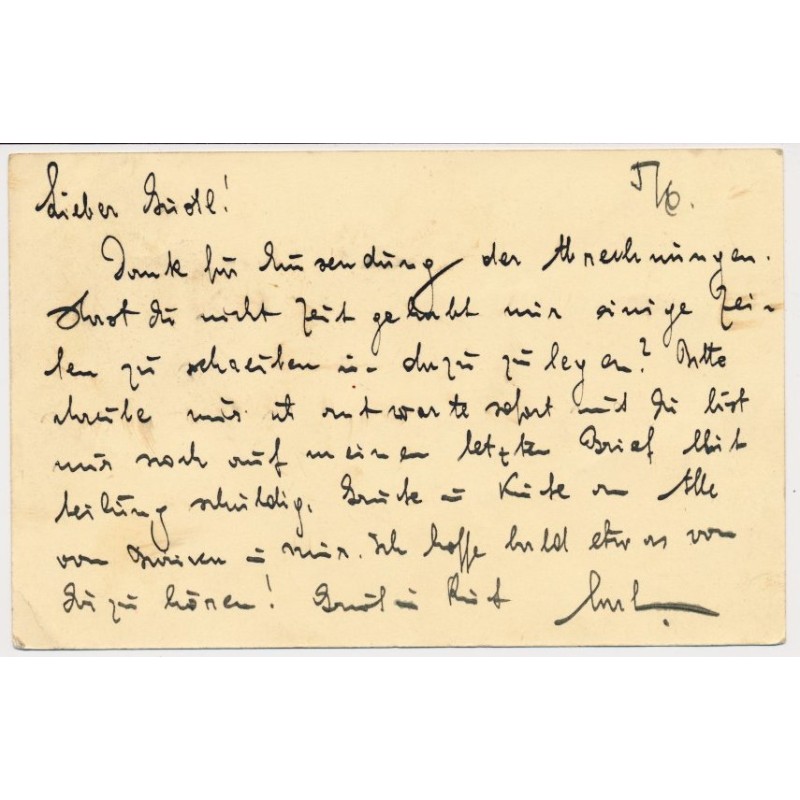 5/6.
Lieber Gustl!
Dank für Zusendung der Abrechnungen.
Hast du nicht Zeit gehabt mir einige Zei-
len zu schreiben u. dazu zu legen? Bitte
schreibe mir u antworte sofort und du bist
mir noch auf meinen letzten Brief Mit
teilung schuldig. Grüße u Küße an Alle
von u mir. Ich hoffe bald etwas von
Dir zu hören! Gruß u Kuß